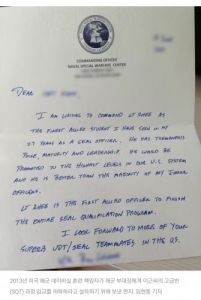 COMMANDING OFFICER
NAVAL SPECIAL WARFARE CENTER
DEAR
I AM WRITING TO COMMEND LT RHEE AS
THE FINEST ALLIED STUDENT I HAVE SEEN IN MY
27 YEARS AS A SEAL OFFICER. HE HAS TREMENDOUS
POISE, MATURITY AND LEADERSHIP. HE WOULD BE
PROMOTED TO THE HIGHEST LEVELS IN OUR U.S. SYSTEM
AND HE IS BETTER THAN THE MAJORITY OF MY JUNIOR
OFFICERS.
LT RHEE IS THE FIRST ALLIED OFFICER TO FINISH
THE ENTIRE SEAL QUALIFICATION PROGRAM.
I LOOK FORWARD TO MORE OF YOUR
SUPERB UDT/SEAL TEAMMATES IN THE
2013년 미국 해군 네이비실 훈련 책임자가 해군 부대장에게 이근씨의 고급반
(SQT) 과정 입교를 허락하라고 설득하기 위해 보낸 편지. 임현동 기자